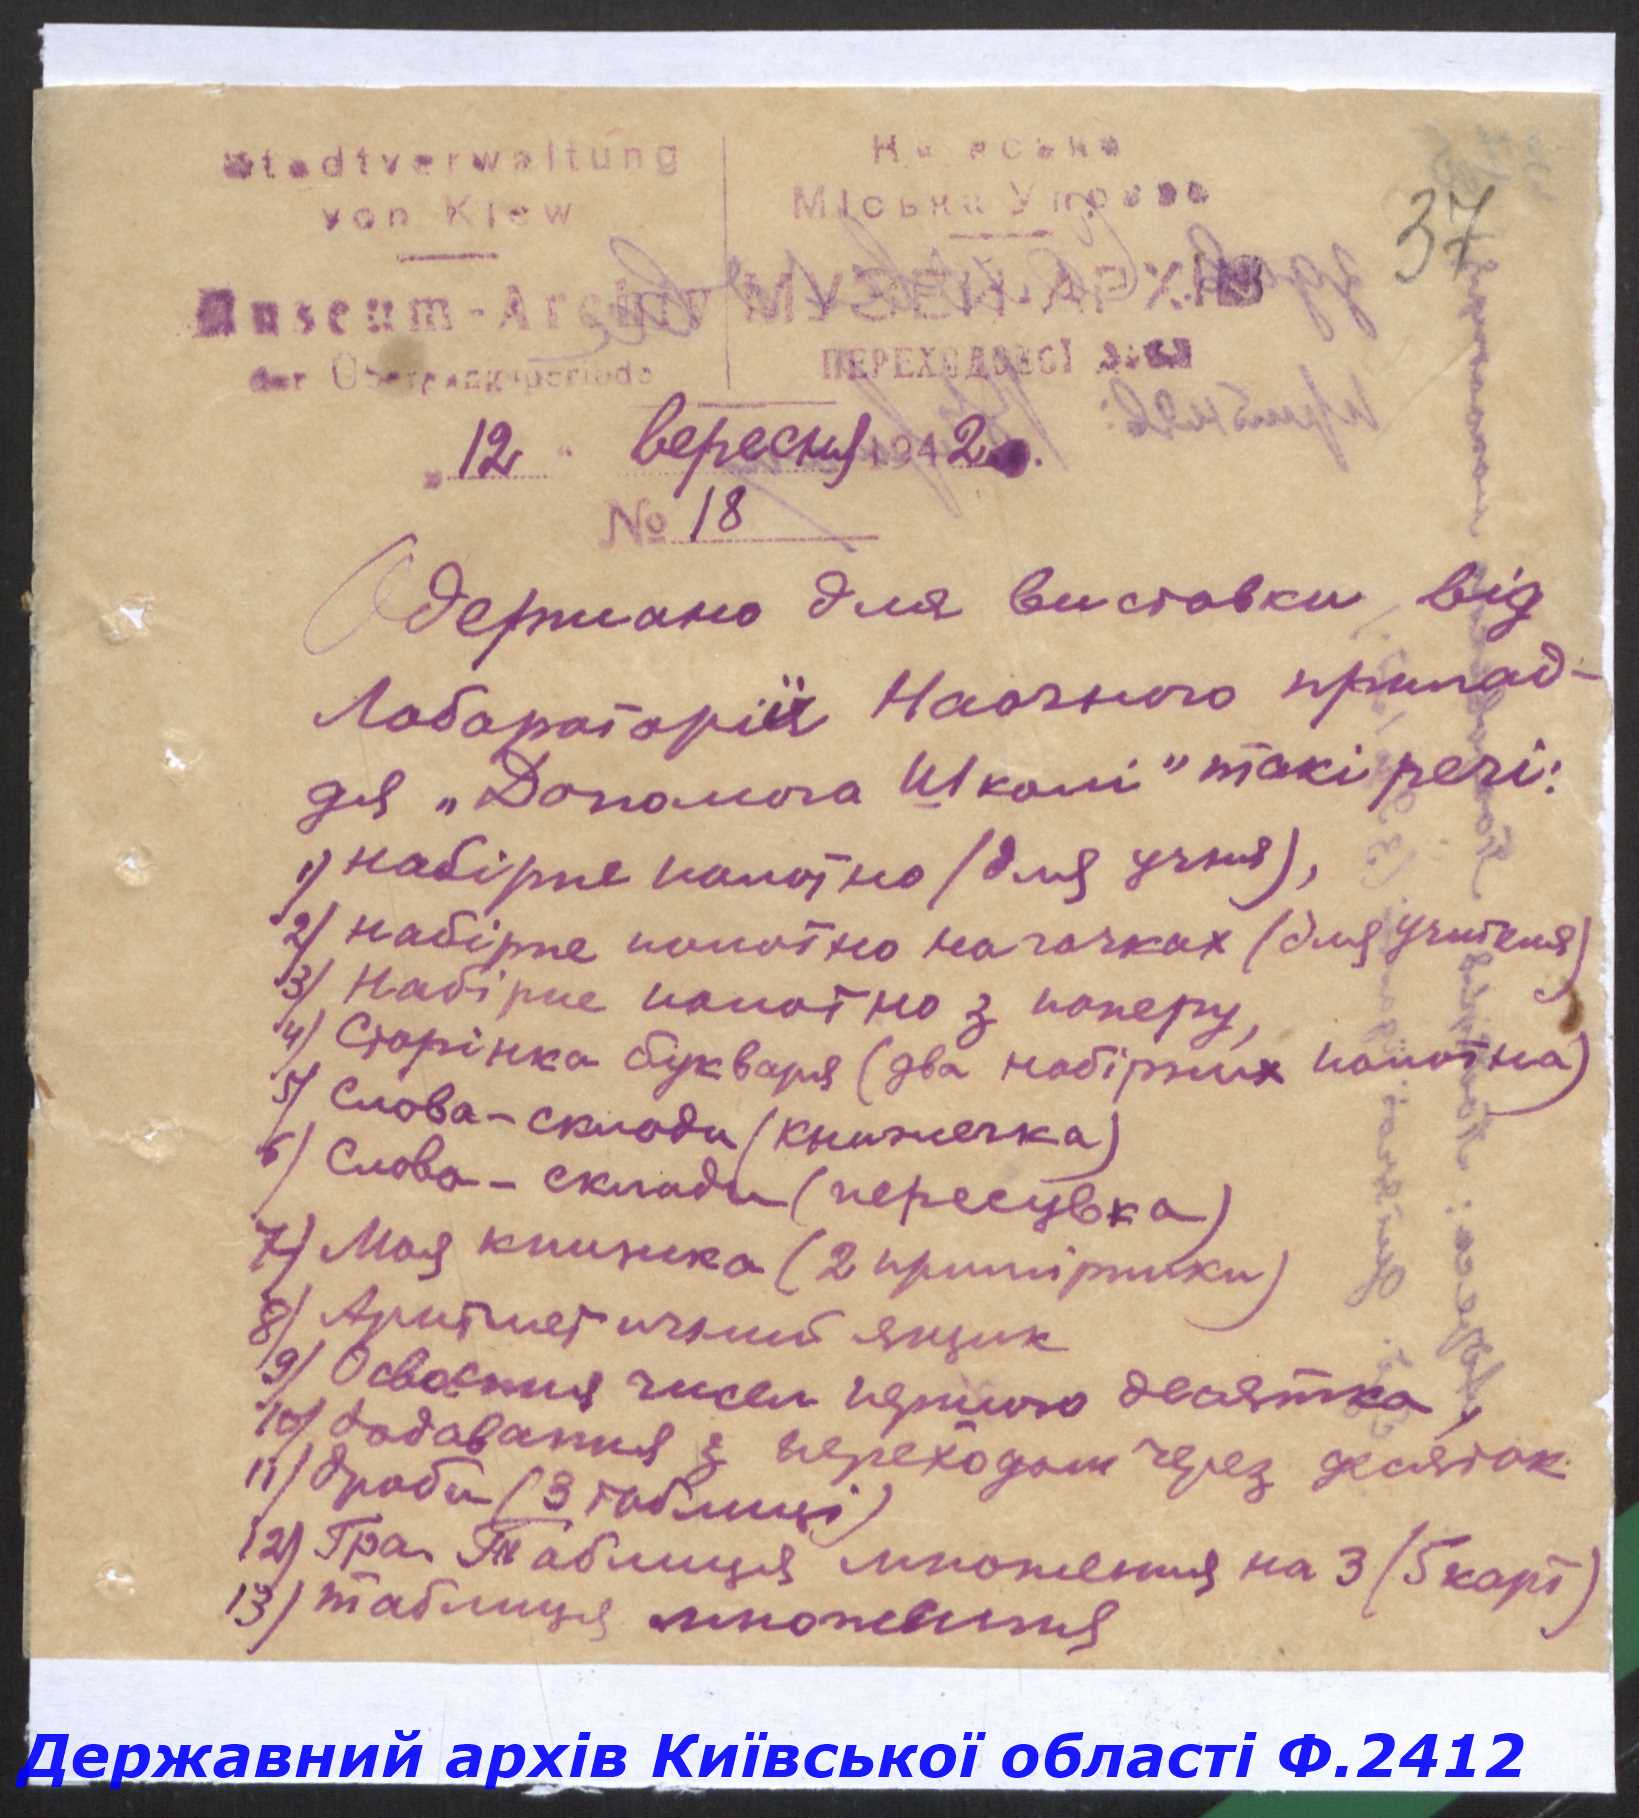 Stadtverwaltung
von Kiew
Київська
Міська Управа
Museum-Archiv
der Übergangsperiode
МУЗЕЙ-АРХІВ
ПЕРЕХОДОВОЇ ДОБИ
37
„12" вересня 1942 р.
№ 18
Одержано для виставки від
Лабораторії Наочного прилад-
дя „Допомога Школі" такі речі:
1) набірне полотно (для учня),
2) набірне полотно на гачках (для учителя)
3) Набірне полотно з паперу,
4) Сторінка букваря (два набірних полотна)
5) Слова-склади (книжечка)
6) Слова-склади (пересувка)
7) Моя книжка (2 примірники)
8) Аритметичний ящик
9) Освоєння чисел першого десятка,
10) додавання з переходом через десяток
11) дроби (3 таблиці)
12) Гра. Таблиця множення на 3 (5 карт)
13) таблиця множення
Державний архів Київської області Ф.2412